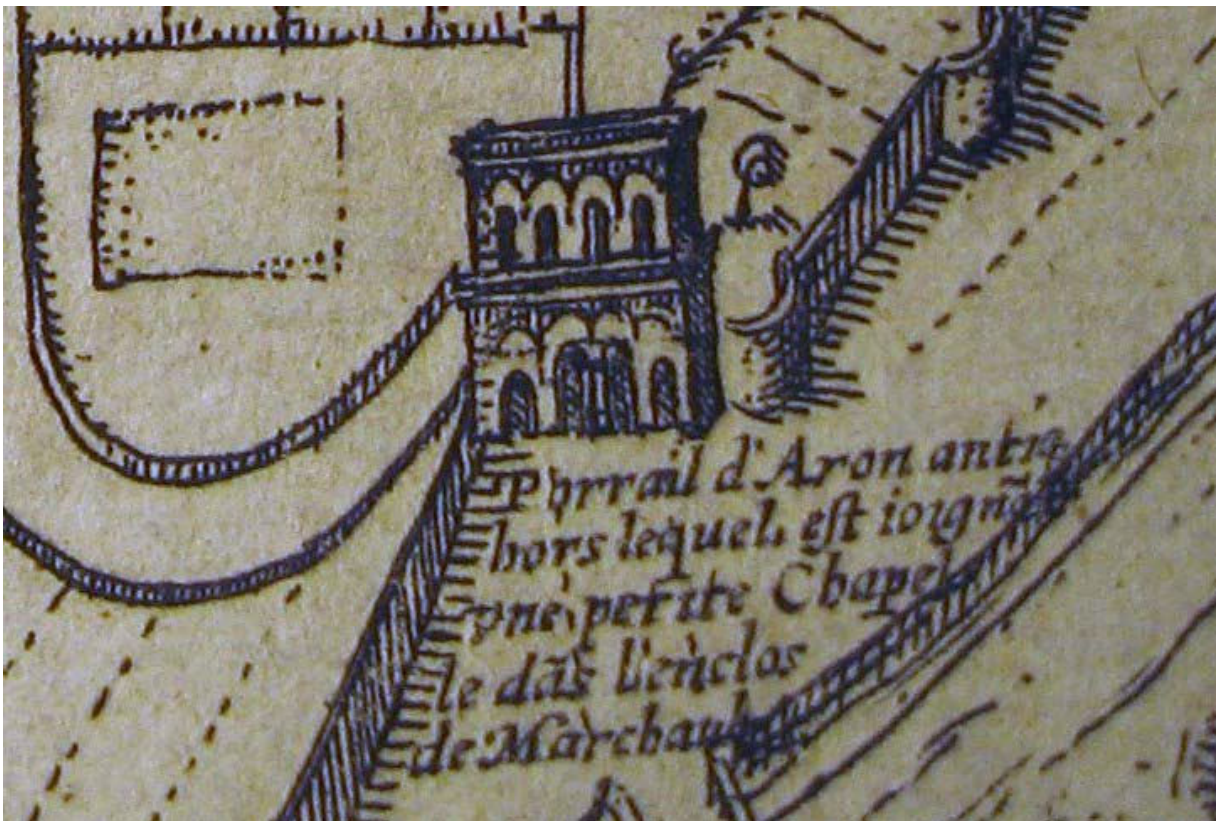 Portail d'Aron antiq
hors lequel est ioignã
vne petite Chapel
le dãs l'enclos
de Marchaux